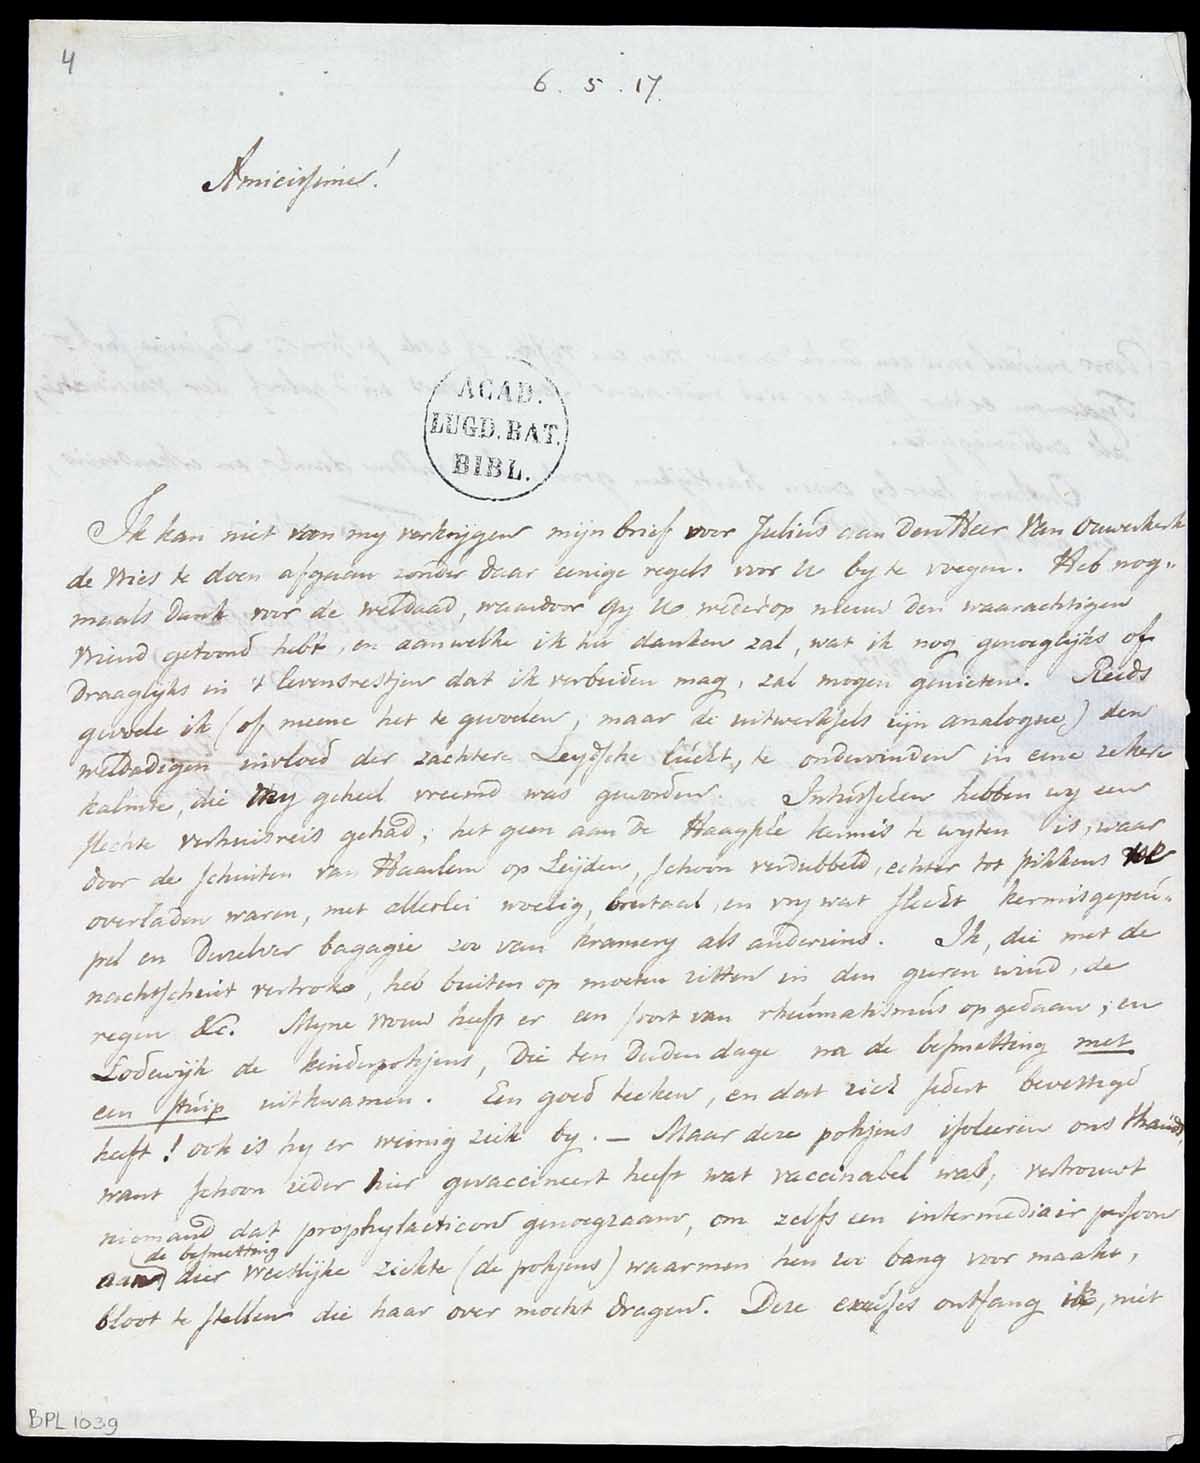 4
6.5.17.
Amicissime!
ACAD.
LUGD. BAT.
BIBL.
Ik kan niet van my verkrijgen mijn brief voor Julius aan Den Heer Van Ouwerkerk
de Vries te doen afgaan zonder daar eenige regels voor U by te voegen. Heb nog-
maals dank voor de weldaad, waardoor Gy U wederop nieuw den waarachtigen
Vriend getoond hebt, en aanwelke ik het danken zal, wat ik nog genoeglijks of
Draaglijks in 't levensrestjen dat ik verbeiden mag, zal mogen genieten. Reeds
gevoele ik (of meene het te gevoelen, maar de uitwerksels zijn analogue) den
weldadigen invloed der zachtere Leydsche lucht, te ondervinden in eene zekere
kalmte, die my geheel vreemd was geworden. Intusschen hebben wy een
slechte verhuisreis gehad; het geen aan de Haagsche kermis te wyten is, waar
door de schuiten van Haarlem op Leijden, schoon verdubbeld, echter tot stikkens toe
overladen waren, met allerlei woelig, brutaal, en vry wat slecht kermisgepeu-
pel en Derzelver bagagie zoo van kramery als anderzins. Ik, die met de
nachtschuit vertrok, heb buiten op moeten zitten in den guren wind, de
regen &c. Myne vrouw heeft er een soort van rheumatismus opgedaan; en
Lodewijk de kinderpokjens, Die ten Derden dage na de besmetting met
een stuip uitkwamen. Een goed teeken, en dat zich sedert bevestigd
heeft! ook is hy er weinig ziek by. — Maar deze pokjens isoleeren ons thands,
want schoon ieder hier gevaccineert heeft wat vaccinabel was, vertrouwt
niemand dat prophylacticon genoegzaam, om zelfs een intermediair persoon
de besmetting
aan dier vreeslijke ziekte (de pokjens) waarmen hen zoo bang voor maakt,
bloot te stellen die haar over mocht dragen. Deze excuses ontfang ik, niet
BPL 1039